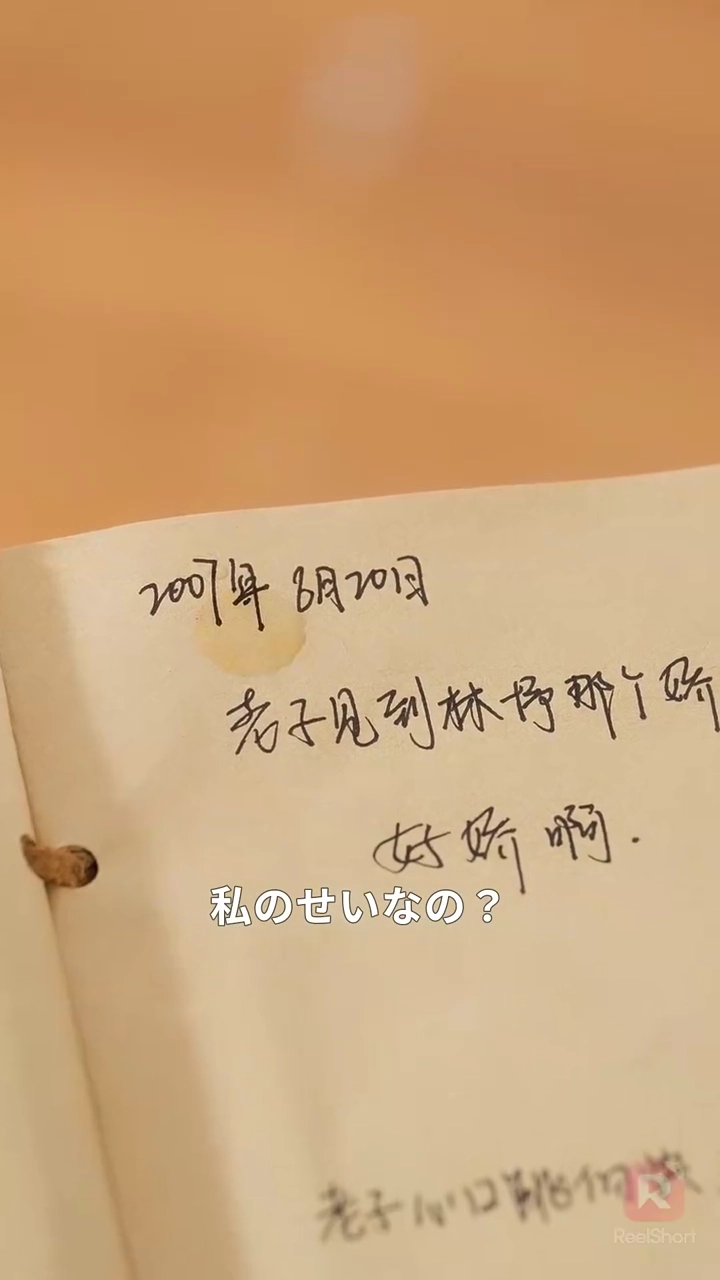 2007年 6月20日
老子见到林婷那个娇
好娇啊.
私のせいなの？
老子心口跳得
ReelShort